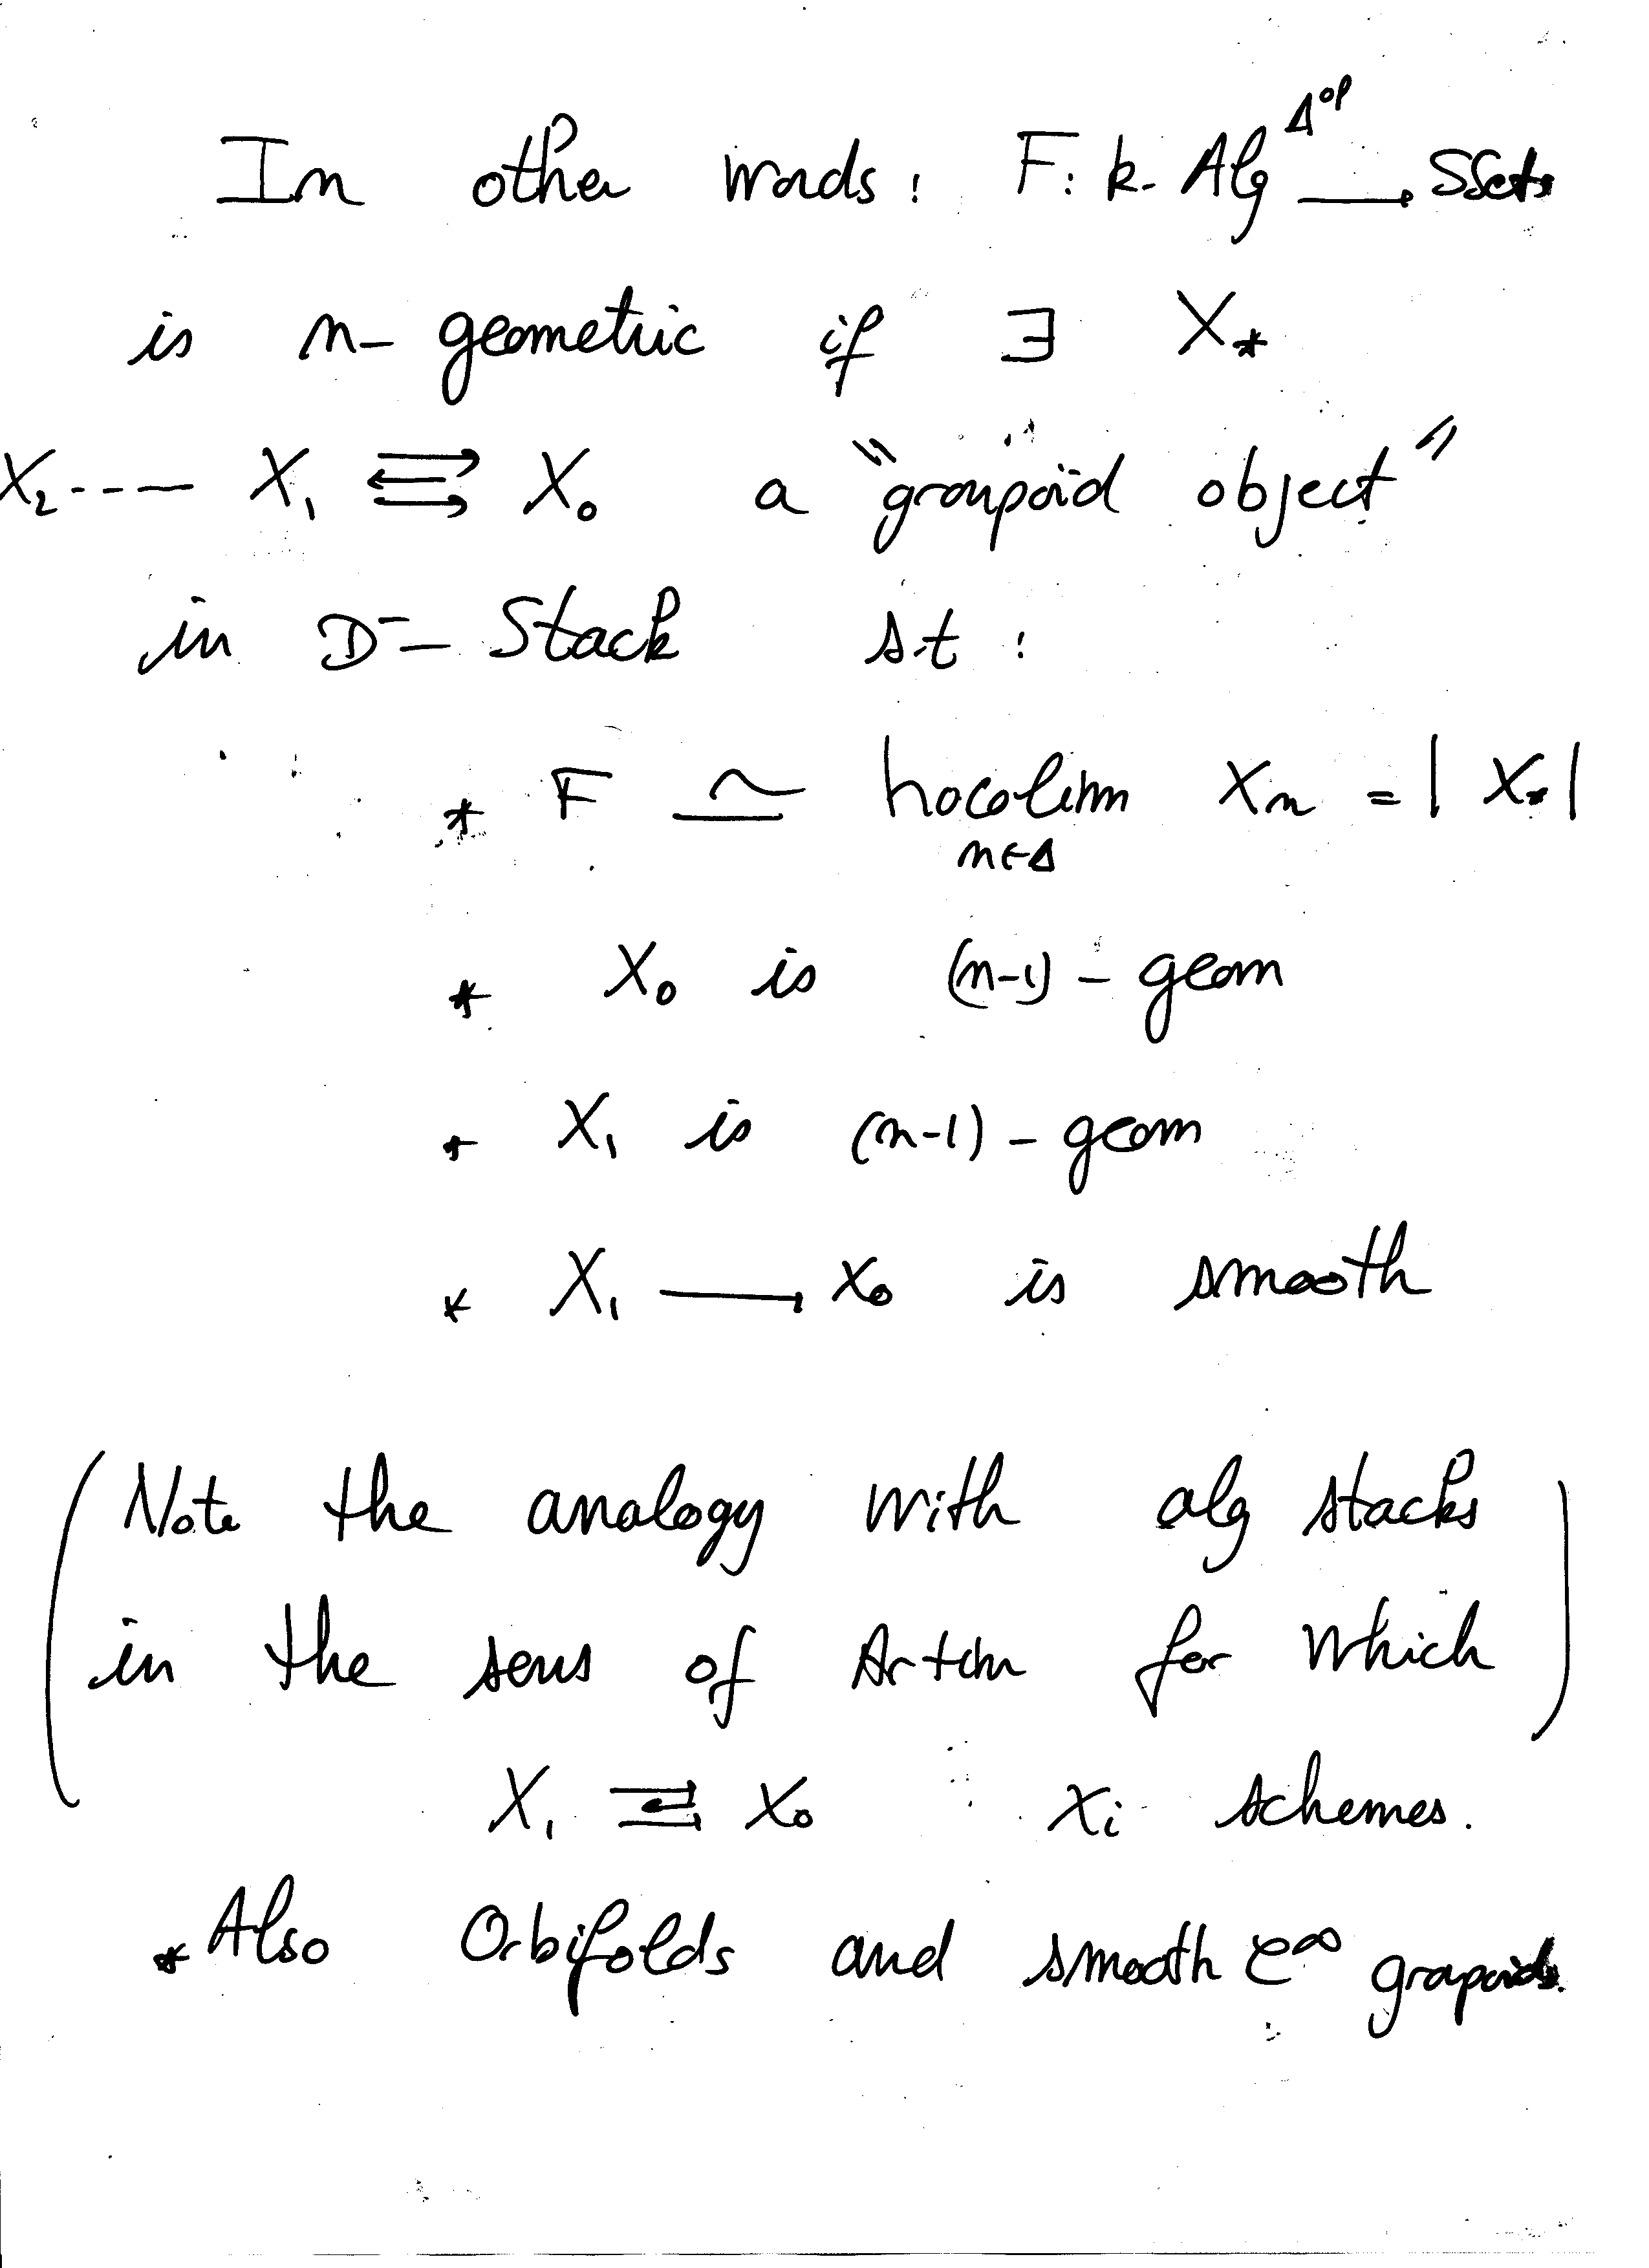 In other words: F: k-Alg^Δ^op ⟶ SSets
is n-geometric if ∃ X_*
X₂ ---- X₁ ⇄ X₀ a "groupoïd object"
in D⁻-Stack s.t:
* F ≃ hocolim_{n∈Δ} X_n = |X_*|
* X₀ is (n-1)-geom
* X₁ is (n-1)-geom
* X₁ ⟶ X₀ is smooth
(Note the analogy with alg stacks
in the sens of Artin for which)
X₁ ⇄ X₀ X_i schemes.
* Also Orbifolds and smooth C^∞ groupoids.